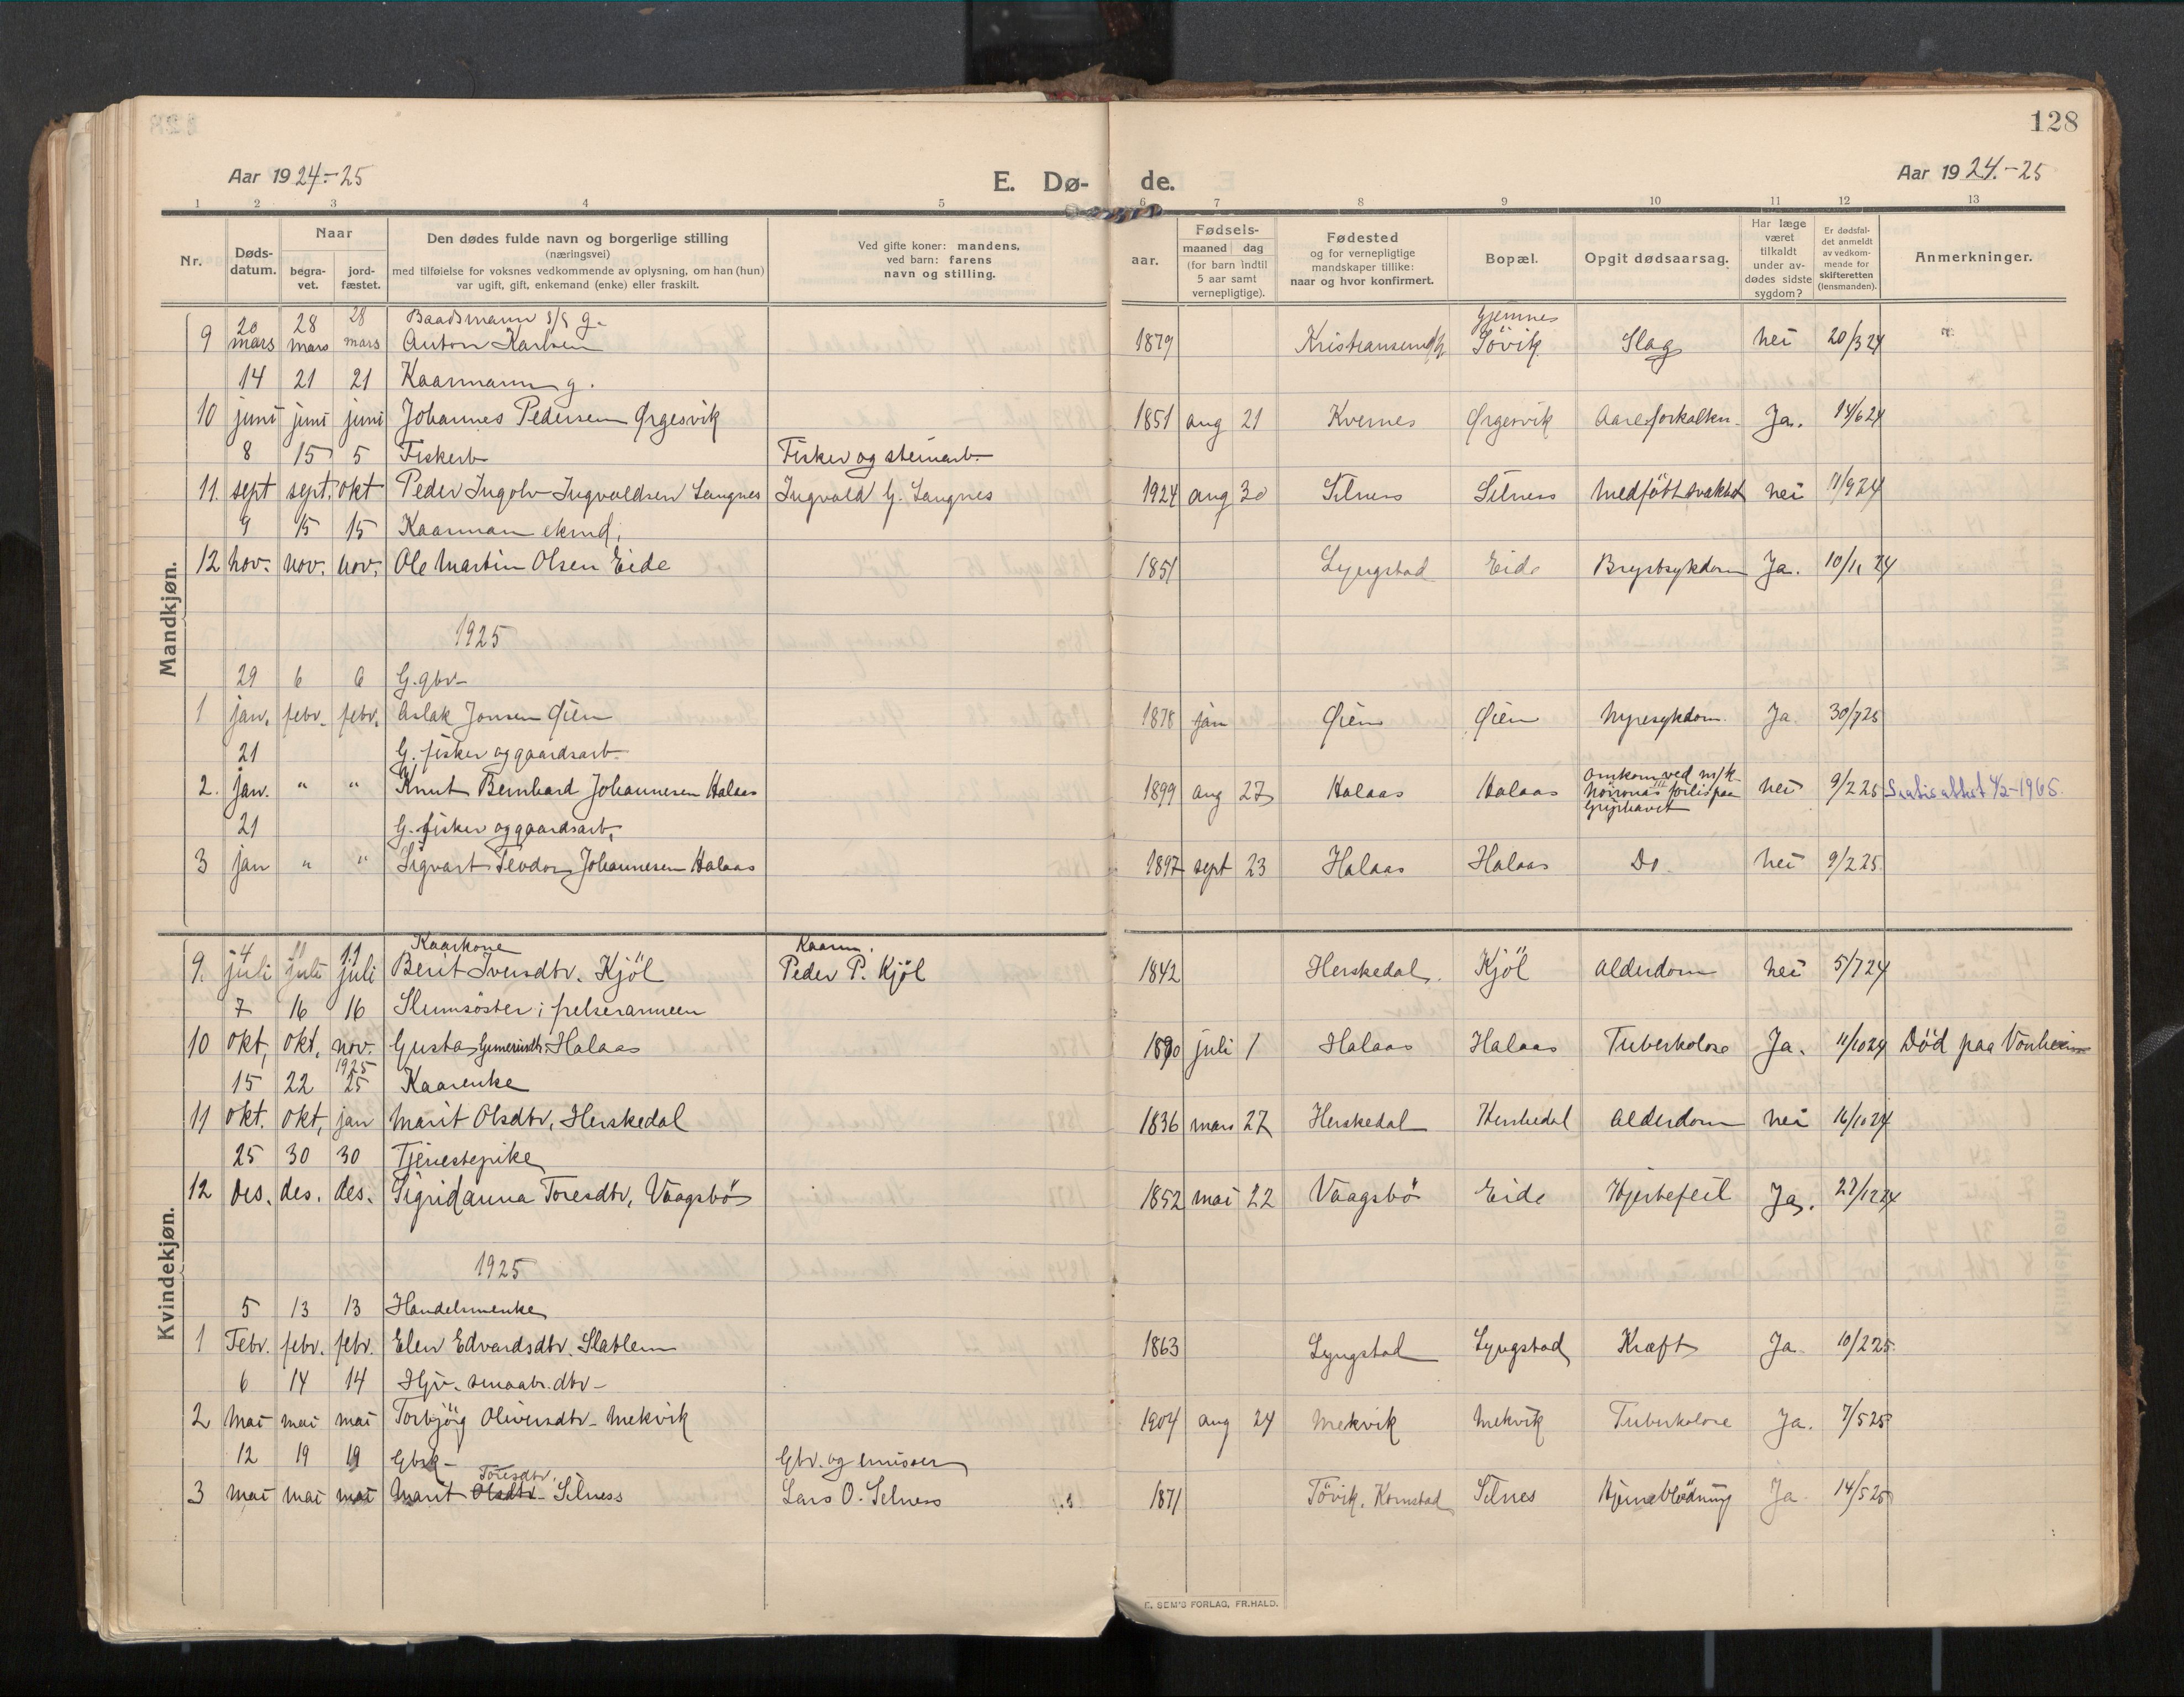 128
Aar 1924-25
E. Dø-
de.
Aar 1924.-25
1 2 3 4 5 6 7 8 9 10 11 12 13
Nr.
Døds-
datum.
Naar
begra-
vet.
jord-
fæstet.
Den dødes fulde navn og borgerlige stilling
(næringsvei)
med tilføielse for voksnes vedkommende av oplysning, om han (hun)
var ugift, gift, enkemand (enke) eller fraskilt.
Ved gifte koner: mandens,
ved barn: farens
navn og stilling.
Fødsels-
aar.
maaned dag
(for barn indtil
5 aar samt
vernepligtige).
Fødested
og for vernepligtige
mandskaper tillike:
naar og hvor konfirmert.
Bopæl.
Opgit dødsaarsag.
Har læge
været
tilkaldt
under av-
dødes sidste
sygdom?
Er dødsfal-
det anmeldt
av vedkom-
mende for
skifteretten
(lensmanden).
Anmerkninger.
Mandkjøn.
20 28 28 Baadsmann s/s g. Gjemnes
9 mars mars mars Anton Karlsen 1879 Kristiansund Søvik Slag nei 20/3 24
14 21 21 Kaarmann g.
10 juni juni juni Johannes Pedersen Ørgesvik 1851 aug 21 Kvernes Ørgesvik Aareforkalkn. Ja. 14/6 24
8 15 5 Fiskerb Fisker og steinarb.
11. sept sept. okt Peder Ingolv Ingvaldsen Langnes Ingvald G. Langnes 1924 aug 30 Silness Silness Medfött svakhet nei 11/9 24
9 15 15 Kaarman ekmd.
12 nov. nov. nov. Ole Martin Olsen Eide 1851 Lyngstad Eide Brystsykdom Ja. 10/11 24
1925
29 6 6 G. gbr.
1 jan. febr. febr. Aslak Jonsen Øien 1878 jan Øien Øien Nyresykdom. Ja 30/1 25
21 G. fisker og gaardsarb. Omkom ved m/k
2. jan. " " Knut Bernhard Johannesen Halaas 1899 aug 27 Halaas Halaas forlis paa nei 9/2 25 1965.
Griphavet
21 G. fisker og gaardsarb.
3 jan " " Sigvart Teodor Johannesen Halaas 1897 sept 23 Halaas Halaas Do. nei 9/2 25.
Kvindekjøn.
4 11 11 Kaarkone Kaarm.
9. juli juli juli Berit Iversdtr. Kjöl Peder P. Kjöl 1842 Herskedal. Kjöl Alderdom nei 5/7 24
7 16 16 Slumsöster i frelserarmeen
10 okt, okt, nov. Gusta Halaas 1890 juli 1 Halaas Halaas Tuberkolose Ja. 11/10 24 Död paa Vonheim
1925
15 22 25 Kaarenke
11 okt. okt, jan Marit Olsdtr, Herskedal 1836 mars 27 Herskedal Herskedal Alderdom nei 16/10 24
25 30 30 Tjenestepike
12 des. des. des. Sigridanna Toresdtr, Vaagsbö 1852 mai 22 Vaagsbö Eide Hjertefeil Ja. 27/12 24
1925
5 13 13 Handelsmenke
1 Febr. febr. febr. Elen Edvardsdtr. Slatlem 1863 Lyngstad Lyngstad Kræft Ja 10/2 25
6 14 14 Hjv. smaabr. dtr-
2 mai mai mai Torbjörg Oliversdtr. Mekvik 1904 aug 24 Mekvik Mekvik Tuberkolose Ja. 7/5 25
12 19 19 Gbrk- Gbr. og emissær
Toresdtr.
3 mai mai mai Marit Olsdtr. Silness Lars O. Silness 1871 Tövik, Kornstad Silnes Hjerneblödning Ja 14/5 25
E. SEM'S FORLAG, FR.HALD.